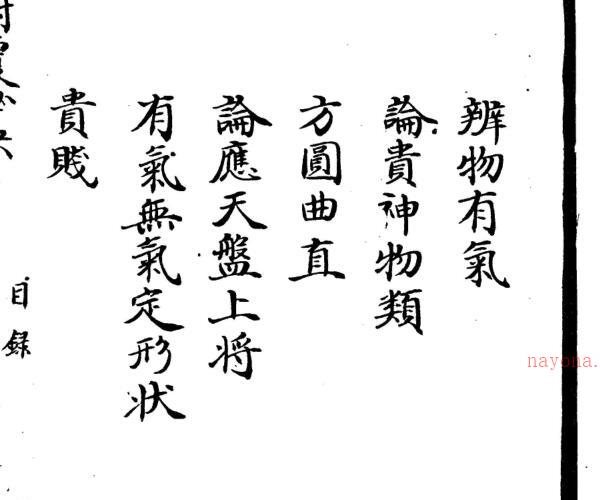 辨物有氣
論貴神物類
方圓曲直
論應天盤上将
有氣無氣定形状
貴賤
目錄
nayona.